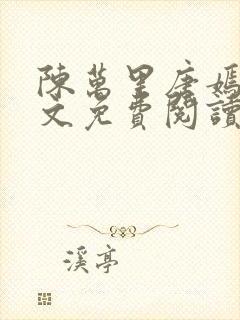 陳萬里唐嫣
文免費閱讀
溪亭